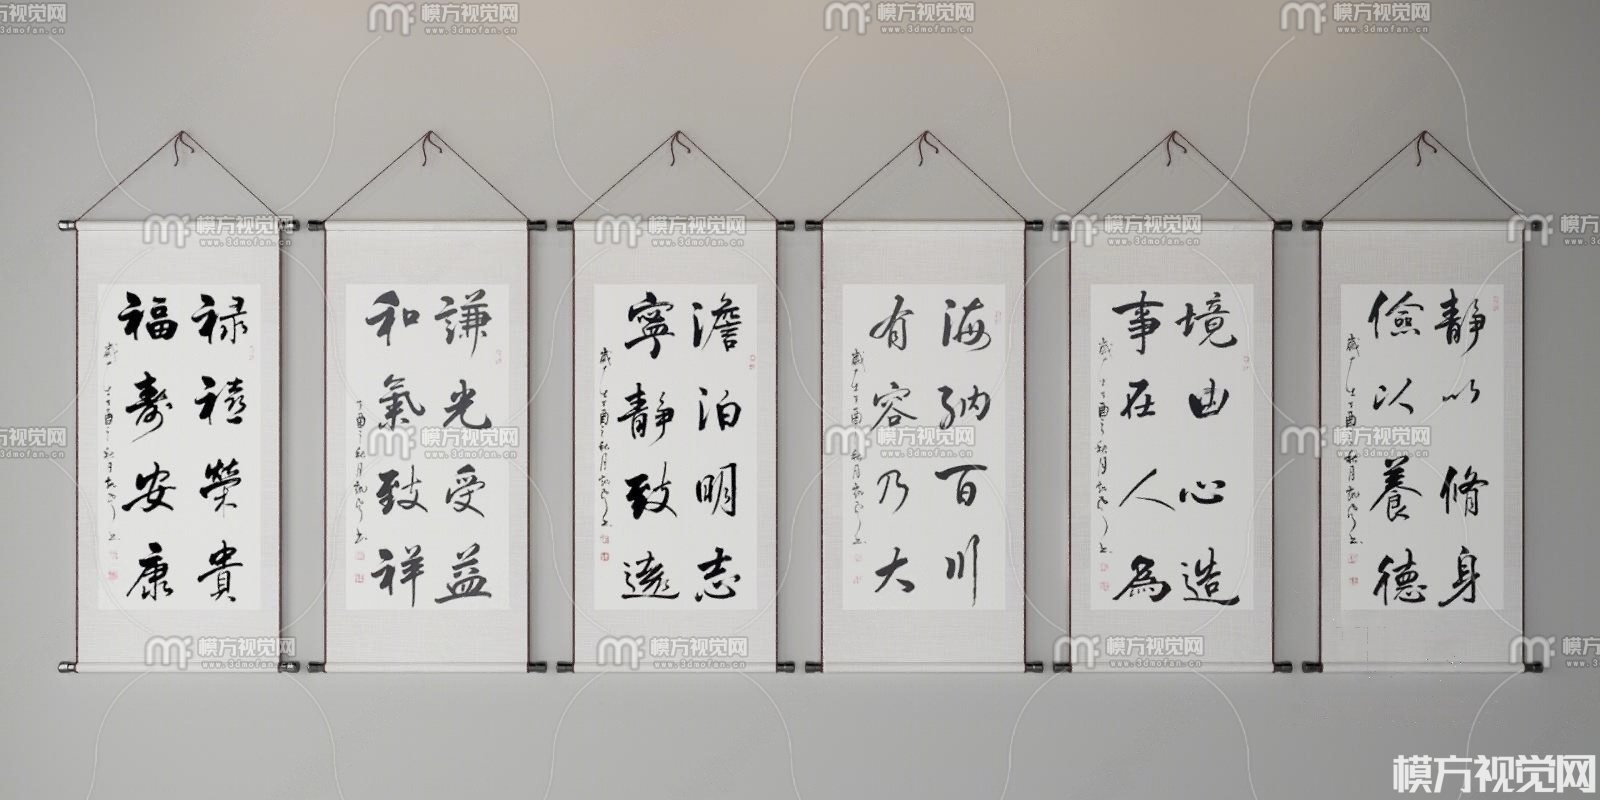 禄禧榮貴
福壽安康
謙光受益
和氣致祥
澹泊明志
寧靜致遠
海納百川
有容乃大
境由心造
事在人為
靜以修身
儉以養德
模方视觉网
www.3dmofan.cn
模方视觉网